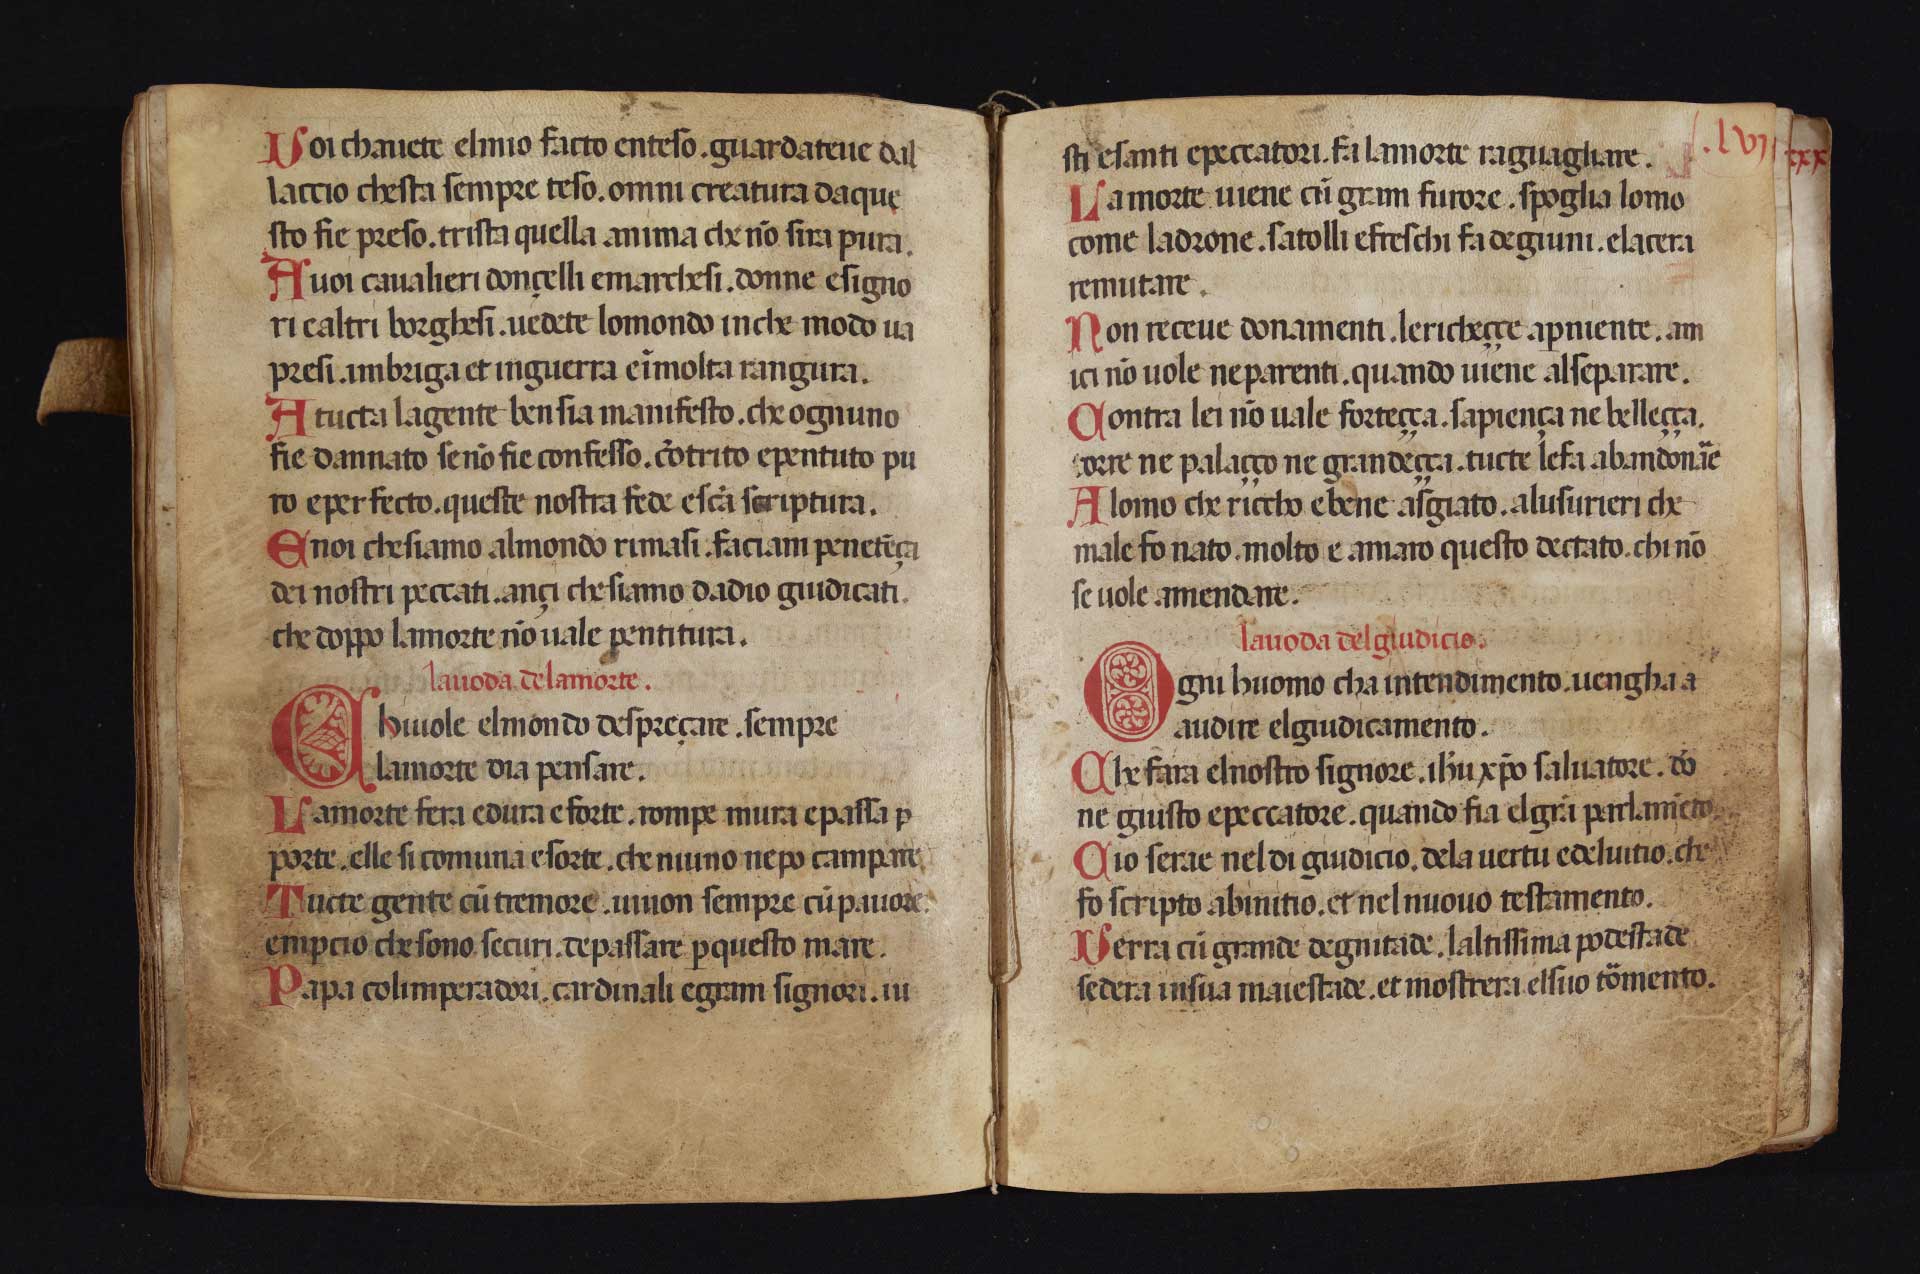 Voi chauete elmio facto enteso. guardateue dal
laccio chesta sempre teso. omni creatura daque
sto fie preso. trista quella anima che nō sira pura.
A uoi caualieri donçelli emarchesi. donne esigno
ri ealtri borghesi. uedete lomondo inche modo ua
presi. imbriga et inguerra eī molta rangura.
A tucta lagente ben sia manifesto. che ognuno
fie dannato se nō fie confesso. cōtrito epentuto pu
ro eperfecto. queste nostra fede escā scriptura.
E noi chesiamo almondo rimasi. faciam penetēça
dei nostri peccati. ançi chesiamo dadio giudicati.
che doppo lamorte nō uale pentitura.
lauoda delamorte.
Chiuole elmondo despreçare. sempre
lamorte dia pensare.
Lamorte fera edura eforte. rompe mura epassa ꝑ
porte. elle si comuna esorte. che niuno ne po campare
Tucte gente cū tremore. uiuon sempre cū pauore.
empcio chesono securi. depassare ꝑquesto mare.
Papa colimperadori. cardinali egram signori. iu
sti esanti epeccatori. fa lamorte raguagliare. .lvj
Lamorte uiene cū gram furore. spoglia lomo
come ladrone. satolli efreschi fa degiuni. elacera
remutare.
Non receue donamenti. lericheççe apniente. am
ici nō uole neparenti. quando uiene alseparare.
Contra lei nō uale forteçça. sapiença ne belleçça.
torre ne palaçço ne grandeçça. tucte lefa abandonāe
Alomo che riccho ebene asgiato. alusurieri che
male fo nato. molto e amaro questo dectato. chi nō
se uole amendare.
lauoda del giudicio.
Ogni huomo cha intendimento. uengha a
audire elgiudicamento.
Che fara elnostro signore. ihū xp̄o saluatore. dō
ne giusto epeccatore. quando fia elgrā parlamēto.
Cio serae nel di giudicio. dela uertu edeluitio. che
fo scripto abinitio. et nel nuouo testamento.
Verra cū grande degnitade. laltissima podestade
sedera insua maiestade. et mostrera elsuo tōmento.